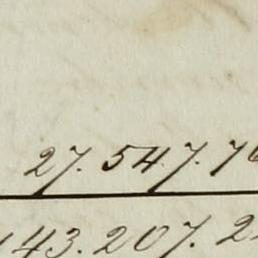 27.547.76
143.207.2